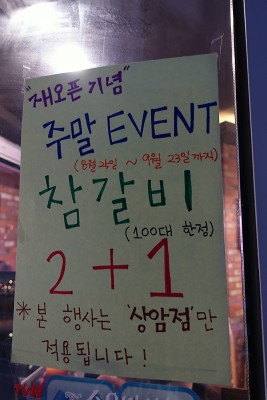 "재오픈 기념"
주말 EVENT
(8월24일 ~ 9월 23일까지)
참갈비
(100대 한정)
2+1
※ 본 행사는 '상암점'만
적용됩니다!